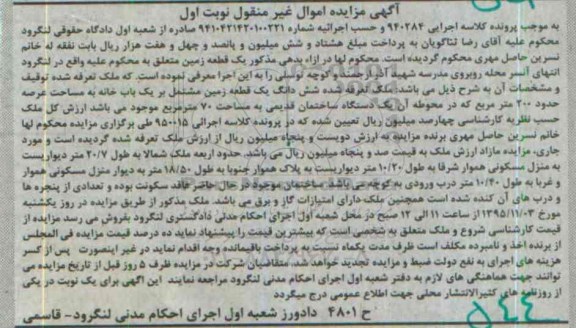 آگهی مزایده اموال غیر منقول نوبت اول
به موجب پرونده کلاسه اجرایی ۹۴۰۲۸۴ و حسب اجرائیه شماره ۹۴۱۰۴۲۱۴۲۰۱۰۰۲۲۱ صادره از شعبه اول دادگاه حقوقی لنگرود
محکوم علیه آقای رضا تتاگویان به پرداخت مبلغ هشتاد و شش میلیون و پانصد و چهل و هفت هزار ریال بابت نفقه له خانم
نسرین حاصل مهری محکوم گردیده است. محکوم لها در ازاء بدهی مذکور یک قطعه زمین متعلق به محکوم علیه واقع در لنگرود
انتهای آنسر محله روبروی مدرسه شهید آذر ارجمند و کوچه توسلی را به این اجرا معرفی نموده است. که ملک تعرفه شده توقیف
و مشخصات آن به شرح ذیل می باشد: ملک تعرفه شده شش دانگ یک قطعه زمین مشتمل بر یک باب خانه به مساحت عرصه
حدود ۲۰۰ متر مربع که در محوطه آن یک دستگاه ساختمان قدیمی به مساحت ۷۰ مترمربع موجود می باشد ارزش کل ملک
حسب نظریه کارشناسی چهارصد میلیون ریال تعیین شده که در پرونده کلاسه اجرائی ۹۵۰۰۱۵ طی برگزاری مزایده محکوم لها
خانم نسرین حاصل مهری برنده مزایده به ارزش دویست و پنجاه میلیون ریال از ارزش ملک تعرفه شده گردیده است و مورد
جاری، مزایده مازاد ارزش ملک به قیمت صد و پنجاه میلیون ریال می باشد. حدود اربعه ملک شمالا به طول ۲۰/۷ متر دیواریست
به منزل مسکونی هموار شرقا به طول ۱۰/۲۰ متر دیواریست به پلاک هموار جنوبا به طول ۱۸/۵۰ متر به دیوار منزل مسکونی هموار
و غربا به طول ۱۰/۴۰ متر درب ورودی به کوچه می باشد. ساختمان موجود در حال حاضر فاقد سکونت بوده و تعدادی از پنجره ها
و درب های آن کنده شده است همچنین ملک دارای امتیازات گاز و برق می باشد. ملک مذکور از طریق مزایده در روز یکشنبه
مورخ ۱۳۹۵/۱۱/۰۳ از ساعت ۱۱ الی ۱۲ صبح در محل شعبه اول اجرای احکام مدنی دادگستری لنگرود بفروش می رسد مزایده از
قیمت کارشناسی شروع و ملک متعلق به شخصی است که بیشترین قیمت را پیشنهاد نماید ده درصد قیمت مزایده فی المجلس
از برنده اخذ و نامبرده مکلف است ظرف مدت یکماه نسبت به پرداخت باقیمانده وجه اقدام نماید در غیر اینصورت پس از کسر
هزینه های اجرای به نفع دولت ضبط و مزایده تجدید خواهد شد. متقاضیان شرکت در مزایده ظرف ۵ روز قبل از تاریخ مزایده می
توانند جهت هماهنگی های لازم به دفتر شعبه اول اجرای احکام مدنی لنگرود مراجعه نمایند این آگهی برای یک نوبت در یکی
از روزنامه های کثیرالانتشار محلی جهت اطلاع عمومی درج میگردد
ح ۴۸۰۱ دادورز شعبه اول اجرای احکام مدنی لنگرود- قاسمی